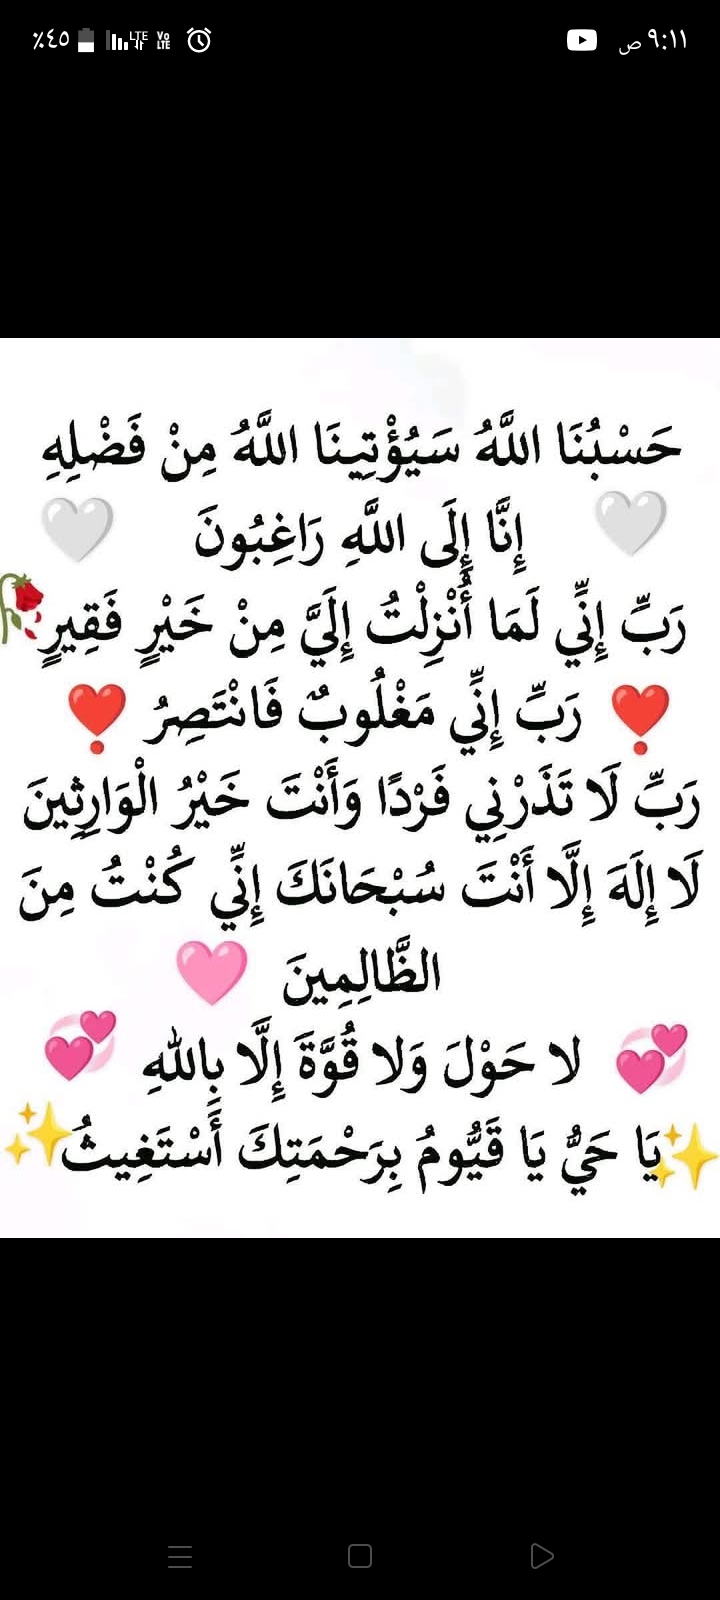 ٩:١١ ص
٪٤٥
LTE
Vo LTE
حَسْبُنَا اللَّهُ سَيُؤْتِينَا اللَّهُ مِنْ فَضْلِهِ
إِنَّا إِلَى اللَّهِ رَاغِبُونَ
رَبِّ إِنِّي لَمَا أُنْزِلْتُ إِلَيَّ مِنْ خَيْرٍ فَقِيرٍ
رَبِّ إِنِّي مَغْلُوبٌ فَانْتَصِرُ
رَبِّ لَا تَذَرْنِي فَرْدًا وَأَنْتَ خَيْرُ الْوَارِثِينَ
لَا إِلَهَ إِلَّا أَنْتَ سُبْحَانَكَ إِنِّي كُنْتُ مِنَ
الظَّالِمِينَ
لا حَوْلَ وَلا قُوَّةَ إِلَّا بِاللهِ
يَا حَيُّ يَا قَيُّومُ بِرَحْمَتِكَ أَسْتَغِيثُ